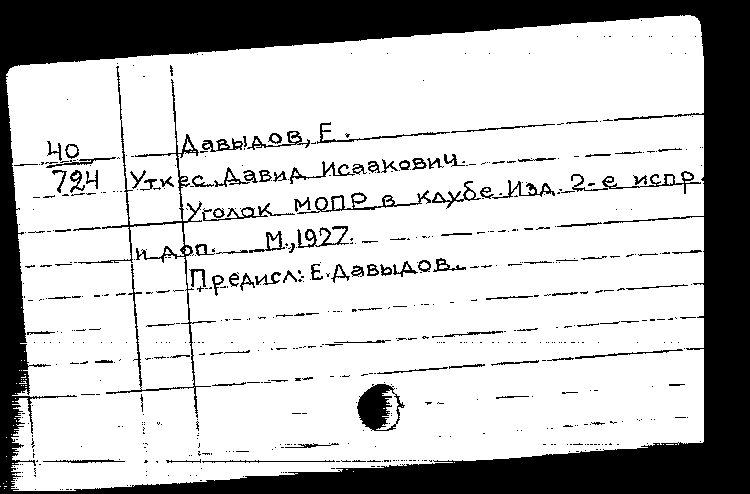 Давыдов, Е.
40
724 Уткес, Давид Исаакович.
Уголок МОПР в клубе. Изд. 2-е испр.
и доп. М., 1927.
Предисл: Е. Давыдов.